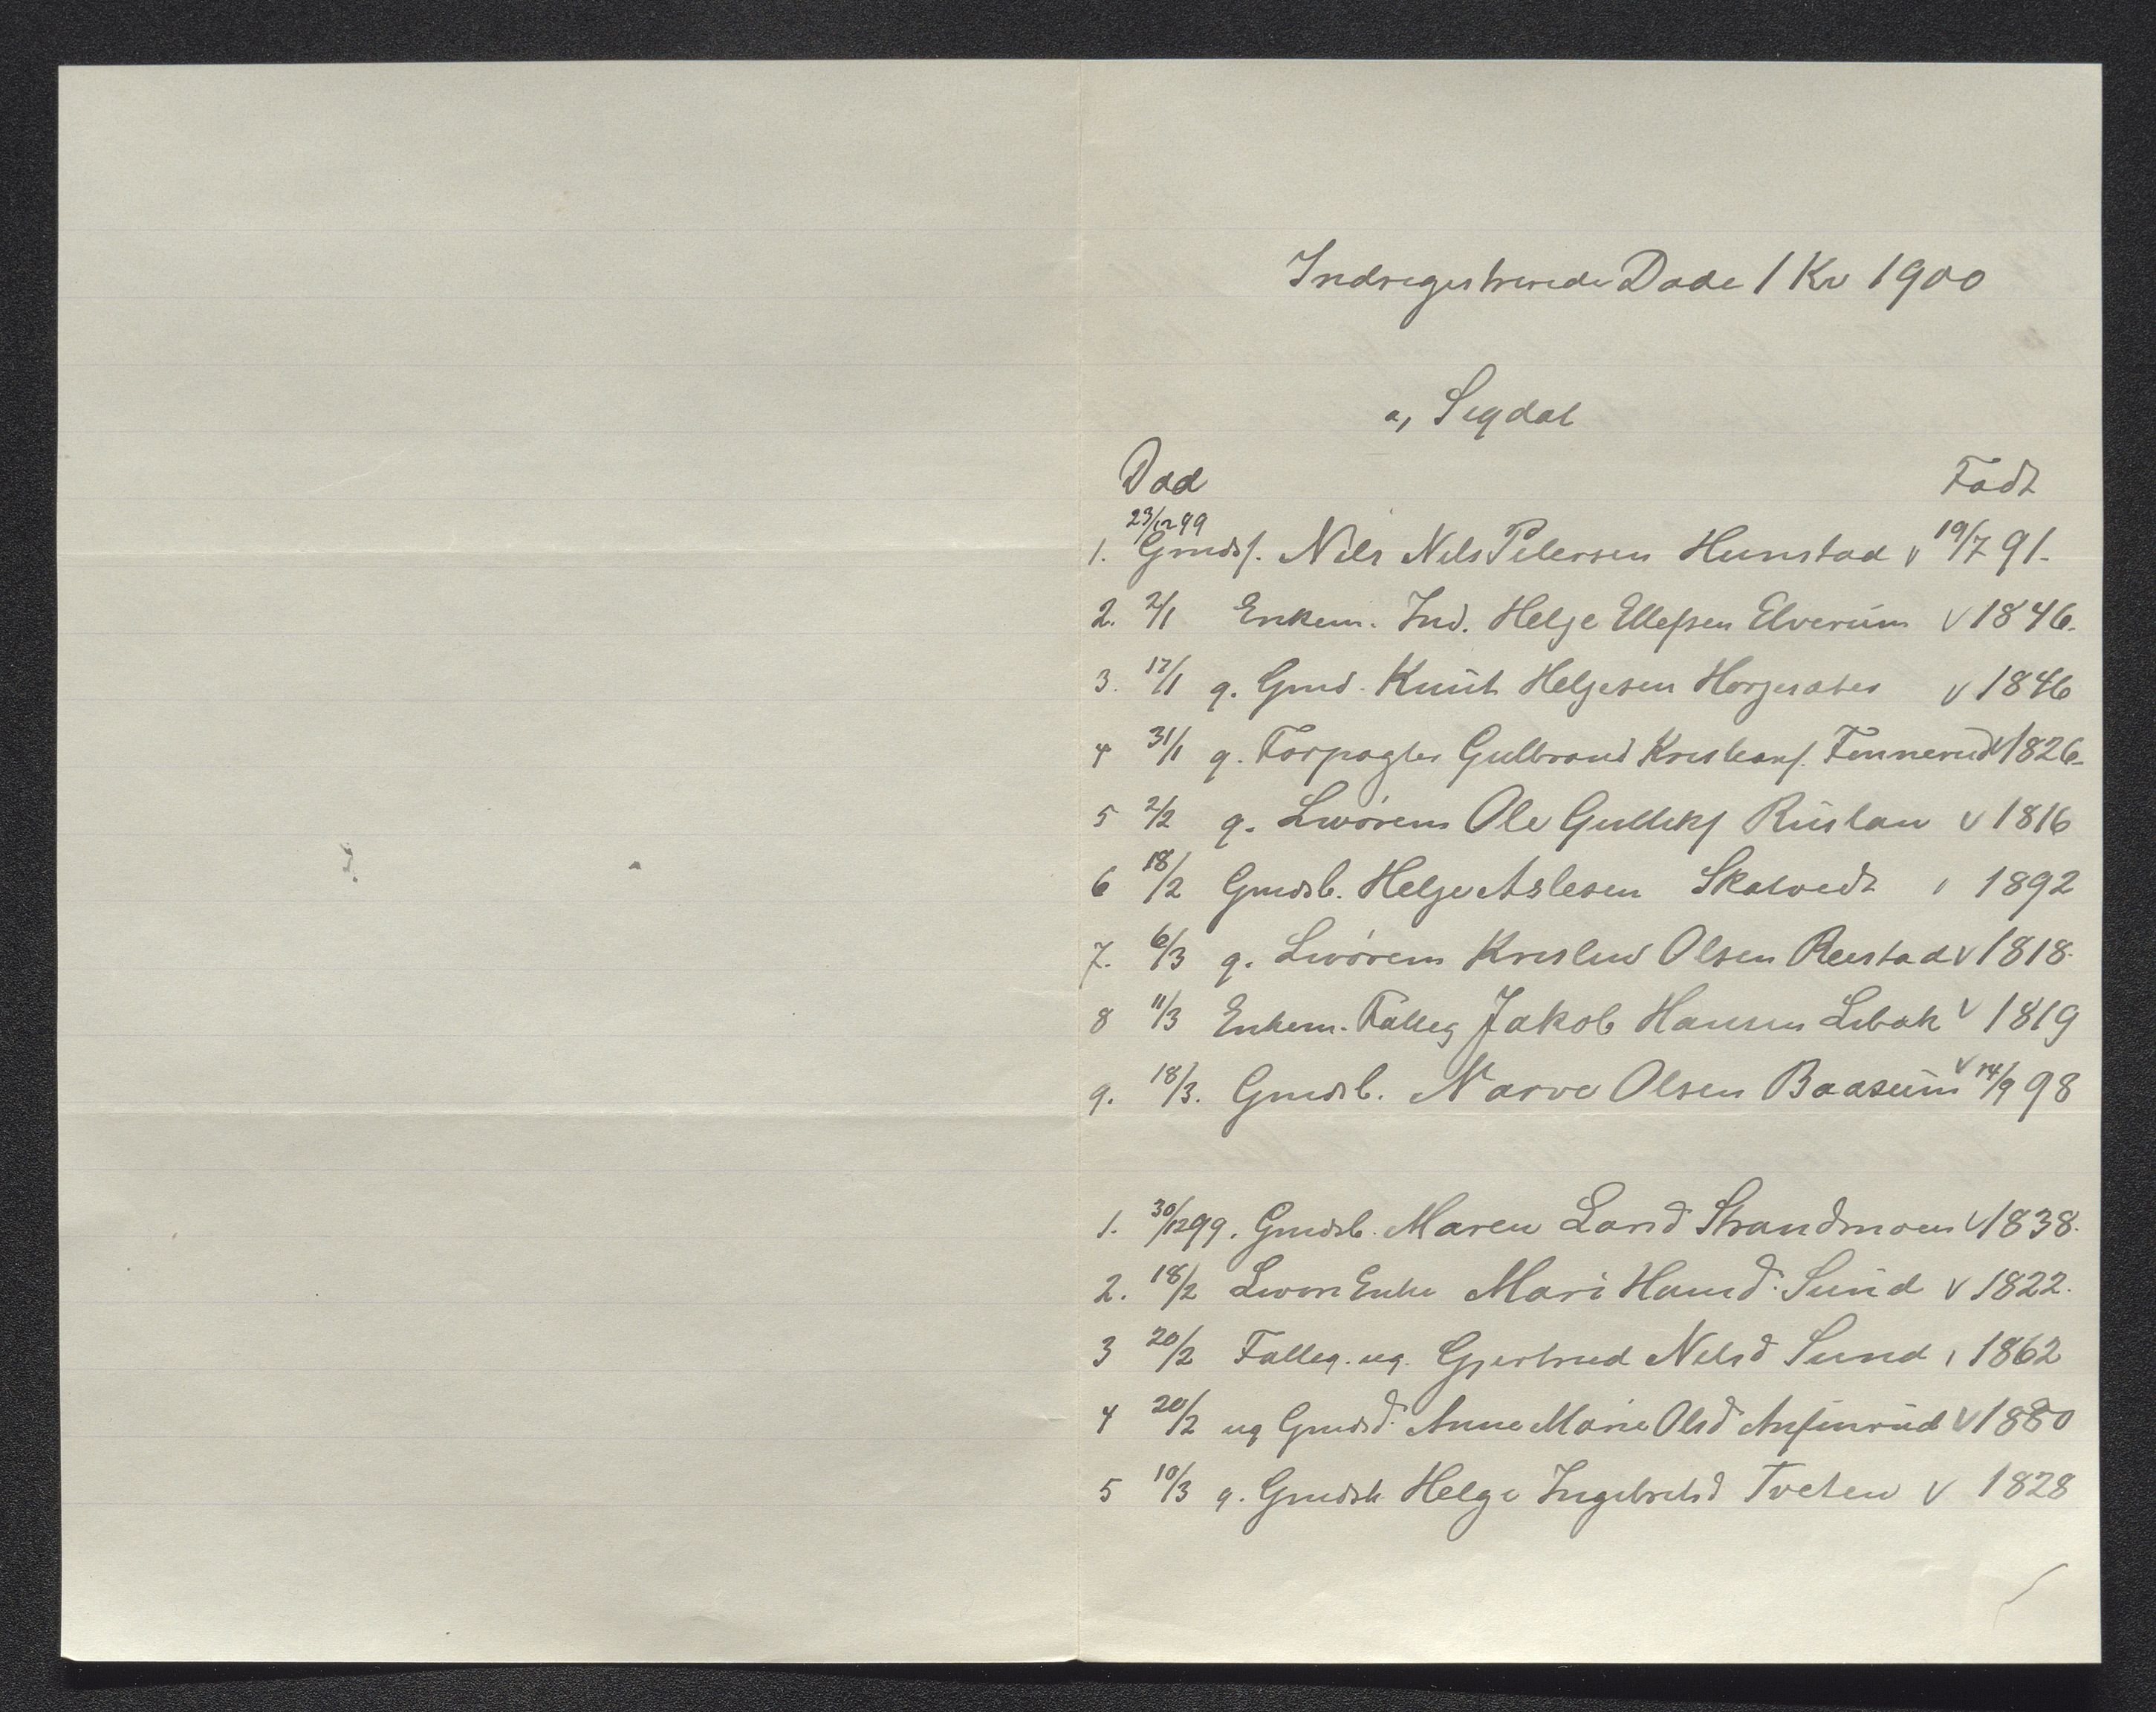 Indregistrerede Døde 1 Kv 1900
a, Sigdal
Død Født
23/12 99
1. Grmdsf. Nils Nils Petersen Hunstad v 19/7 91.
2. 2/1 Enkem. Ind. Helge Ellefsen Elverum v 1846.
3. 17/1 g. Grmd. Knut Helgesen Horgeseter v 1846
4 31/1 g. Forpagter Gulbrand Kristians. Finnerud v 1826.
5 2/2 g. Livørem Ole Gulliks Rustan v 1816
6 18/2 Grmdsb. Helge Aslesen Skatvedt v 1892
7. 6/3 g. Livørem Kristen Olsen Reustad v 1818.
8 11/3 Enkem. Fattig Jakob Hansen Libak v 1819
9. 18/3. Grmdsb. Narve Olsen Baasum v 14/9 98
1. 30/12 99. Grmdsb. Maren Larsd Strandmoen v 1838.
2. 18/2 Livøre Enke Mari Hansd. Sund v 1822.
3 20/2 Fatteg. ug. Gjertrud Nilsd Sund v 1862
4 20/2 ug Grmdsd. Anne Marie Olsd Anfinrud v 1880
5 10/3 g. Grmdsk Helge Ingebretsd Tveten v 1828